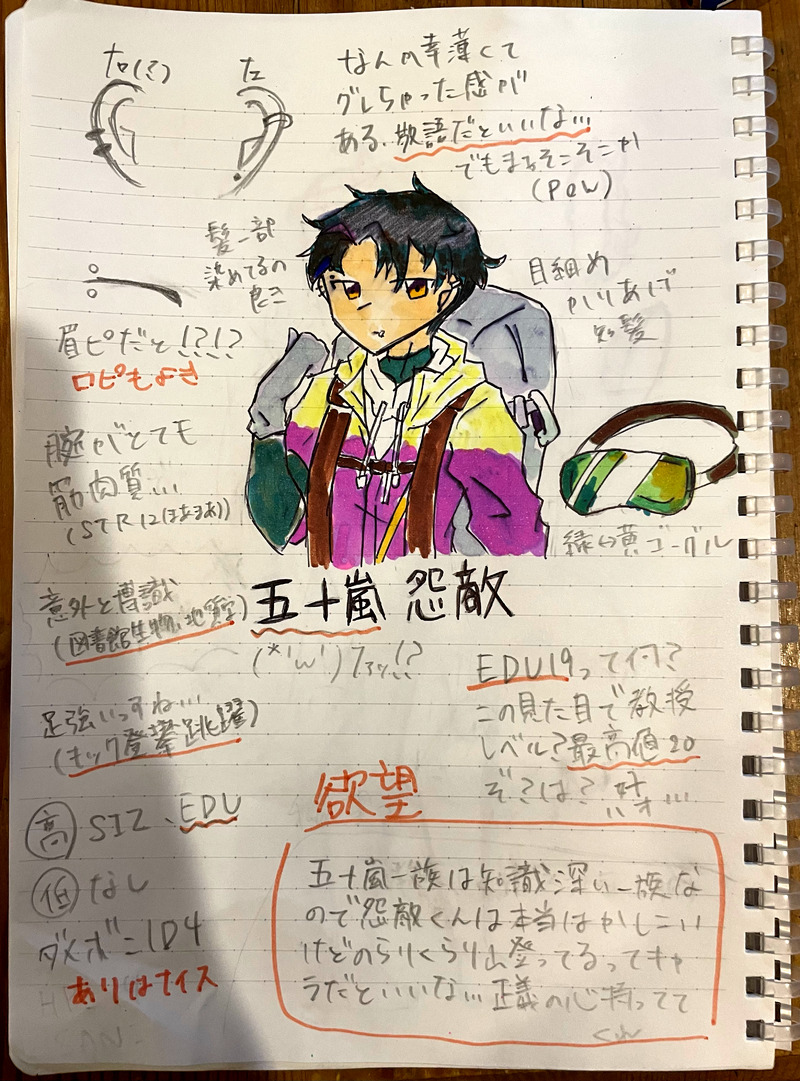 右(?)
左
なんか幸薄くて
グレちゃった感が
ある、敬語だといいな…
でもまあそこそこか
(POW)
髪一部
染めてるの
良き
目細め
かりあげ
短髪
眉ピだと!?!?
口ピもよき
腕がとても
筋肉質…
(STR12(まあまあ))
緑⇔黄ゴーグル
五十嵐 怨敵
(*'ω')ファッ!?
意外と博識
(図書館生物、地質学)
EDU19って何?
この見た目で教授
レベル?最高値20
ぞ?は?好ォ…
足強いっすね…
(キック登攀跳躍)
高 SIZ、EDU
低 なし
ダメボ=1D4
ありはナイス
欲望
五十嵐一族は知識深い一族な
ので怨敵くんは本当はかしこい
けどのらりくらり山登ってるってキャ
ラだといいな… 正義の心持ってて